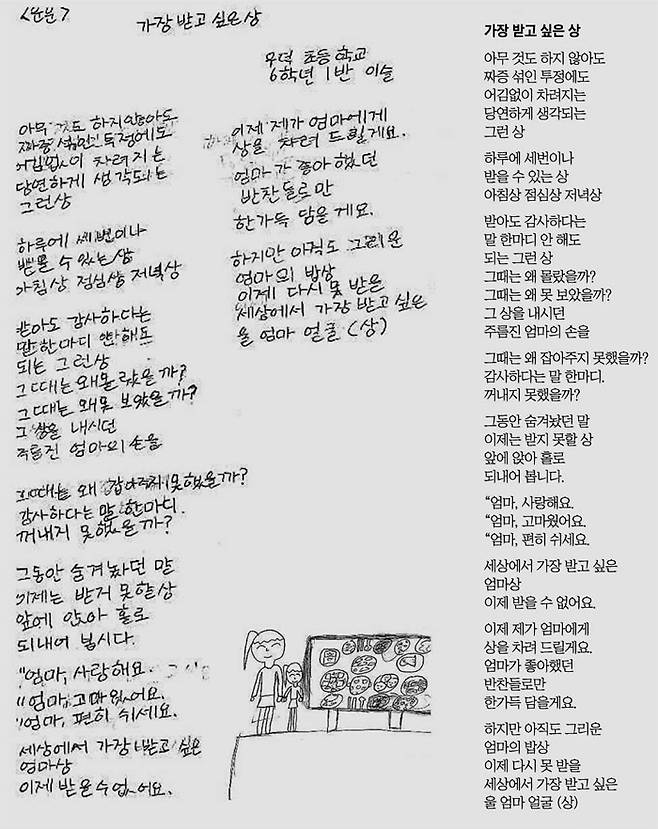 <운문>
가장 받고 싶은 상
우덕 초등 학교
6학년 1반 이슬
아무 것도 하지 않아도
짜증 섞인 투정에도
어김없이 차려지는
당연하게 생각되는
그런상
하루에 세번이나
받을 수 있는 상
아침상 점심상 저녁상
받아도 감사하다는
말 한마디 안해도
되는 그런상
그때는 왜 몰랐을까?
그때는 왜 못 보았을까?
그 상을 내시던
주름진 엄마의 손을
그때는 왜 잡아주지 못했을까?
감사하다는 말 한마디.
꺼내지 못했을까?
그동안 숨겨놨던 말
이제는 받지 못할 상
앞에 앉아 홀로
되내어 봅시다.
"엄마, 사랑해요.
"엄마, 고마웠어요.
"엄마, 편히 쉬세요.
세상에서 가장 받고 싶은
엄마상
이제 받을 수 없어요.
이제 제가 엄마에게
상을 차려 드릴게요.
엄마가 좋아했던
반찬들로만
한가득 담을게요.
하지만 아직도 그리운
엄마의 밥상
이제 다시 못 받을
세상에서 가장 받고 싶은
울 엄마 얼굴 (상)
가장 받고 싶은 상
아무 것도 하지 않아도
짜증 섞인 투정에도
어김없이 차려지는
당연하게 생각되는
그런 상
하루에 세번이나
받을 수 있는 상
아침상 점심상 저녁상
받아도 감사하다는
말 한마디 안 해도
되는 그런 상
그때는 왜 몰랐을까?
그때는 왜 못 보았을까?
그 상을 내시던
주름진 엄마의 손을
그때는 왜 잡아주지 못했을까?
감사하다는 말 한마디.
꺼내지 못했을까?
그동안 숨겨놨던 말
이제는 받지 못할 상
앞에 앉아 홀로
되내어 봅니다.
“엄마, 사랑해요.
“엄마, 고마웠어요.
“엄마, 편히 쉬세요.
세상에서 가장 받고 싶은
엄마상
이제 받을 수 없어요.
이제 제가 엄마에게
상을 차려 드릴게요.
엄마가 좋아했던
반찬들로만
한가득 담을게요.
하지만 아직도 그리운
엄마의 밥상
이제 다시 못 받을
세상에서 가장 받고 싶은
울 엄마 얼굴 (상)